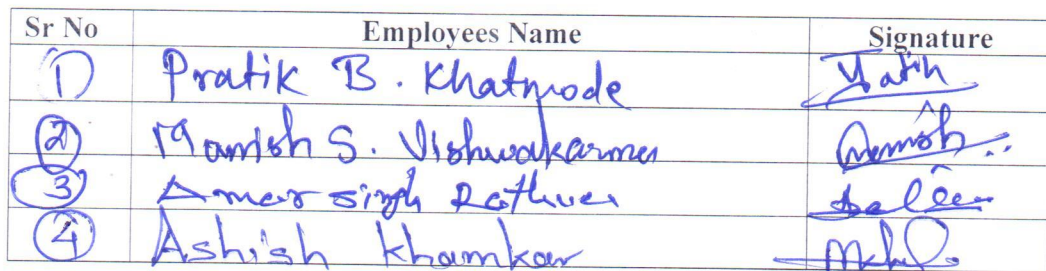 Sr No Employees Name Signature
1 Pratik B. Khatmode
2 Manish S. Vishwakarma Manish
3 Amar singh
4 Ashish Khamkar